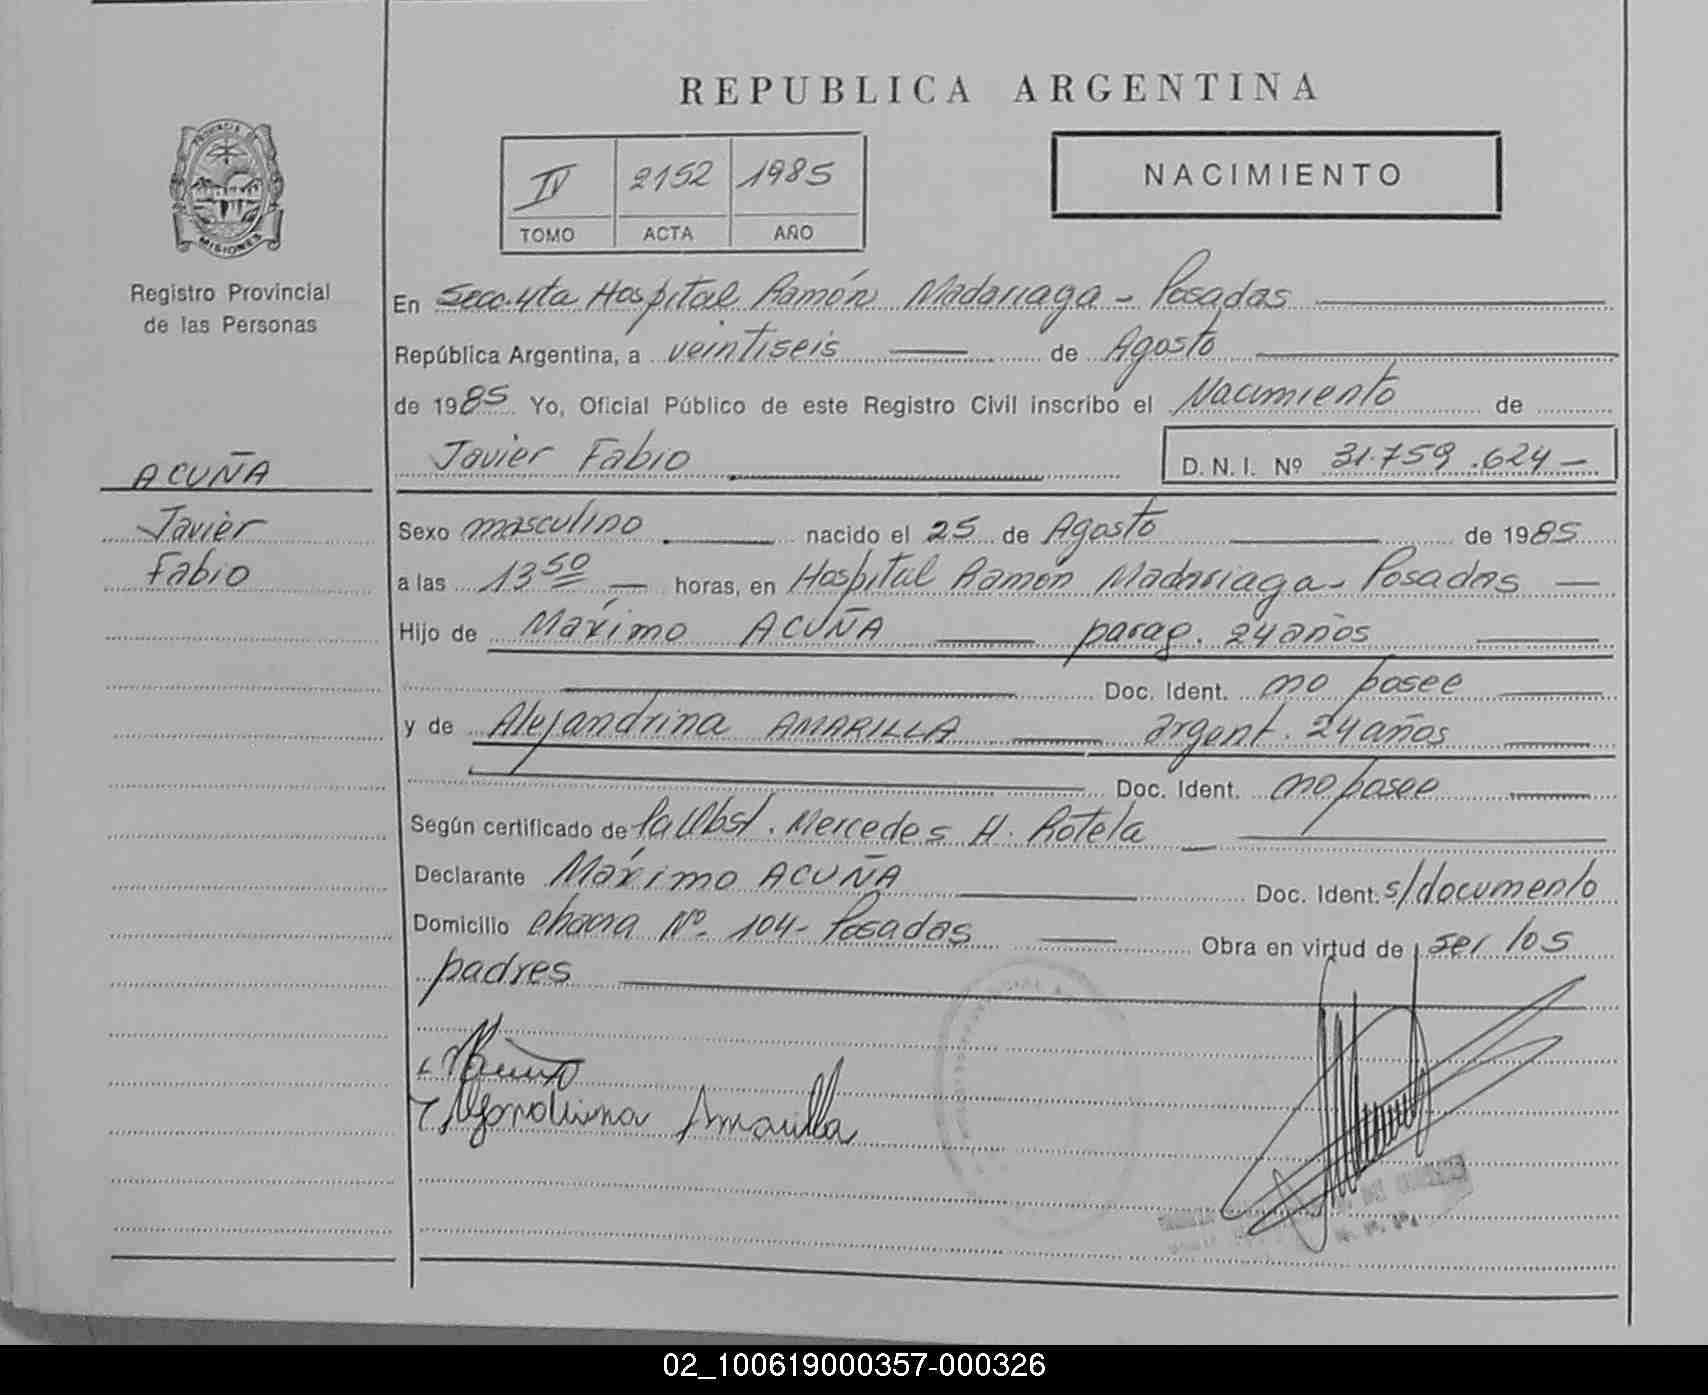 REPUBLICA ARGENTINA
PROVINCIA DE
MISIONES
Registro Provincial
de las Personas
IV 2152 1985
TOMO ACTA AÑO
NACIMIENTO
En Secc. 4ta Hospital Ramón Madariaga - Posadas
República Argentina, a veintiseis de Agosto
de 1985 Yo, Oficial Público de este Registro Civil inscribo el Nacimiento de
Javier Fabio D.N.I. Nº 31.759.624 -
ACUÑA
Javier
Fabio
Sexo masculino nacido el 25 de Agosto de 1985
a las 13 50 horas, en Hospital Ramón Madariaga - Posadas
Hijo de Máximo ACUÑA parag. 24 años
Doc. Ident. no posee
y de Alejandrina AMARILLA argent. 24 años
Doc. Ident. no posee
Según certificado de la Obst. Mercedes H. Rotela
Declarante Máximo ACUÑA Doc. Ident. s/documento
Domicilio chacra Nº 104 - Posadas Obra en virtud de ser los
padres
Alejandrina Amarilla
02_100619000357-000326